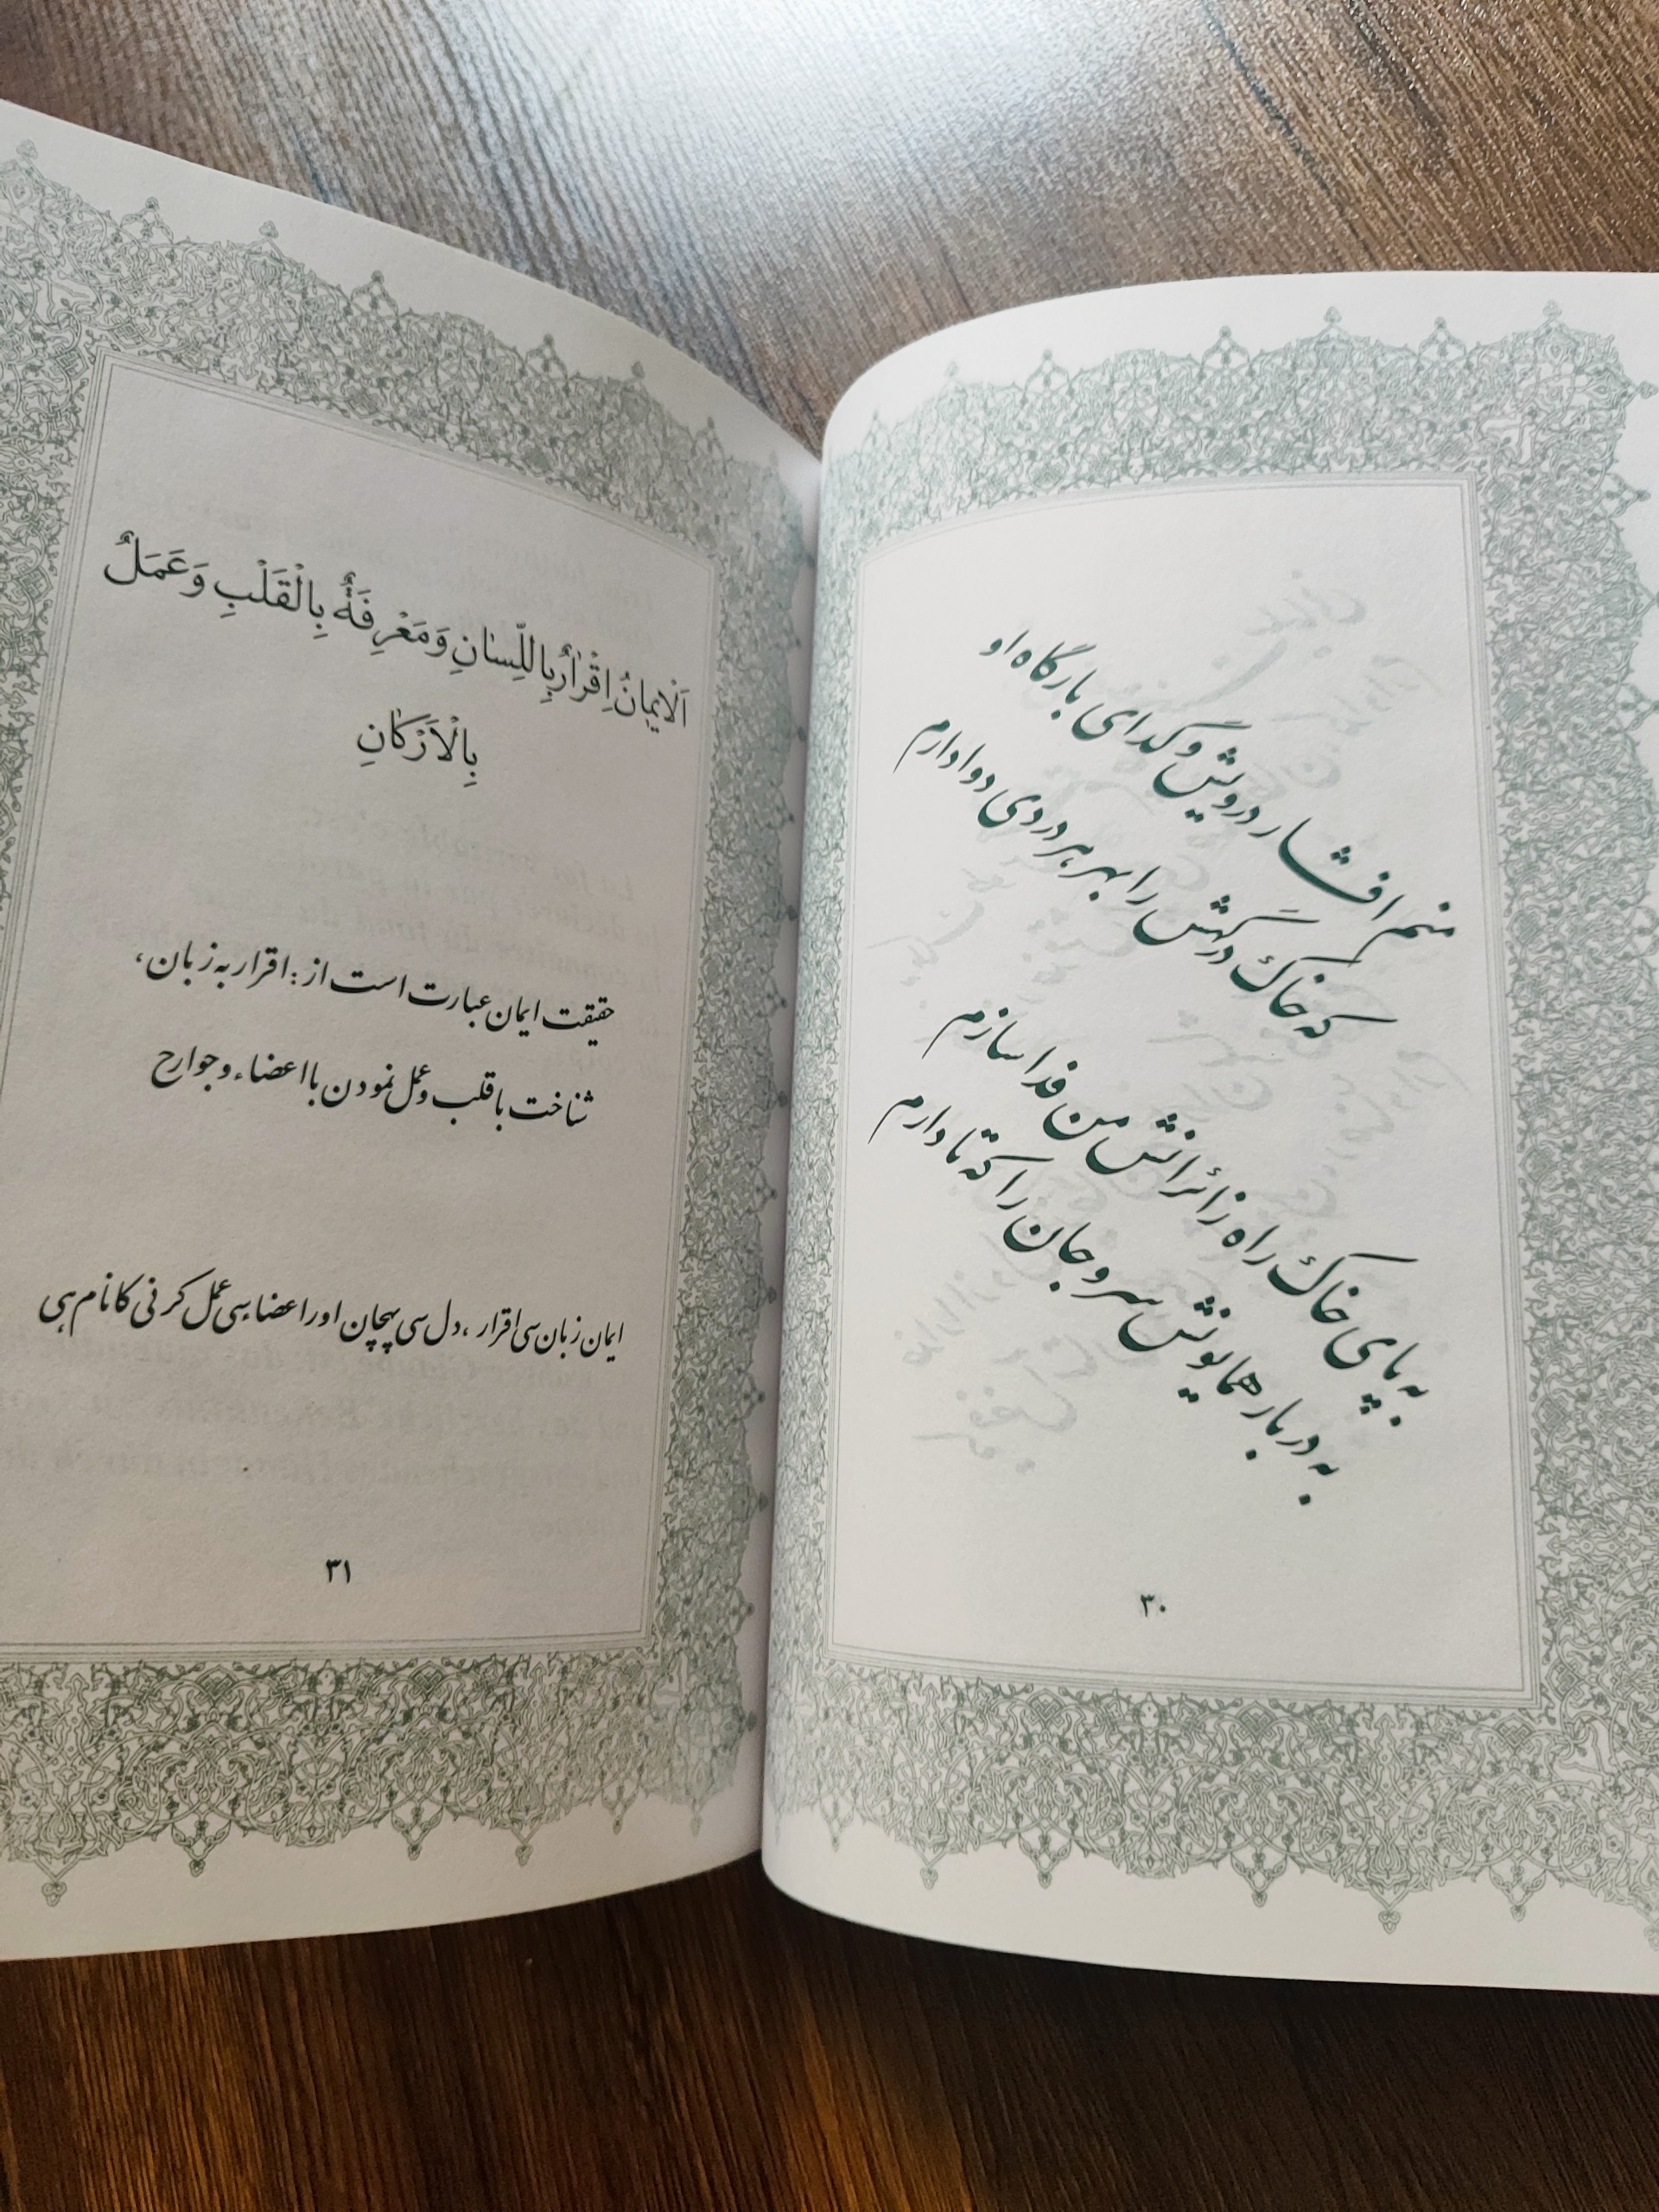 منم افشار درویش و گدای بارگاه او
که خاک درگهش را بهر هر دردی دوا دارم
به پای خاک راه زائرانش من فدا سازم
به دربار همایونش سر و جان را که تا دارم
۳۰
اَلْایمٰانُ اِقْرٰارٌ بِاللِّسٰانِ وَ مَعْرِفَةٌ بِالْقَلْبِ وَ عَمَلٌ
بِالْاَرْکٰانِ
حقیقت ایمان عبارت است از: اقرار به زبان،
شناخت با قلب و عمل نمودن با اعضاء و جوارح
ایمان زبان سی اقرار، دل سی پہچان اور اعضا سی عمل کرنی کا نام ہی
۳۱